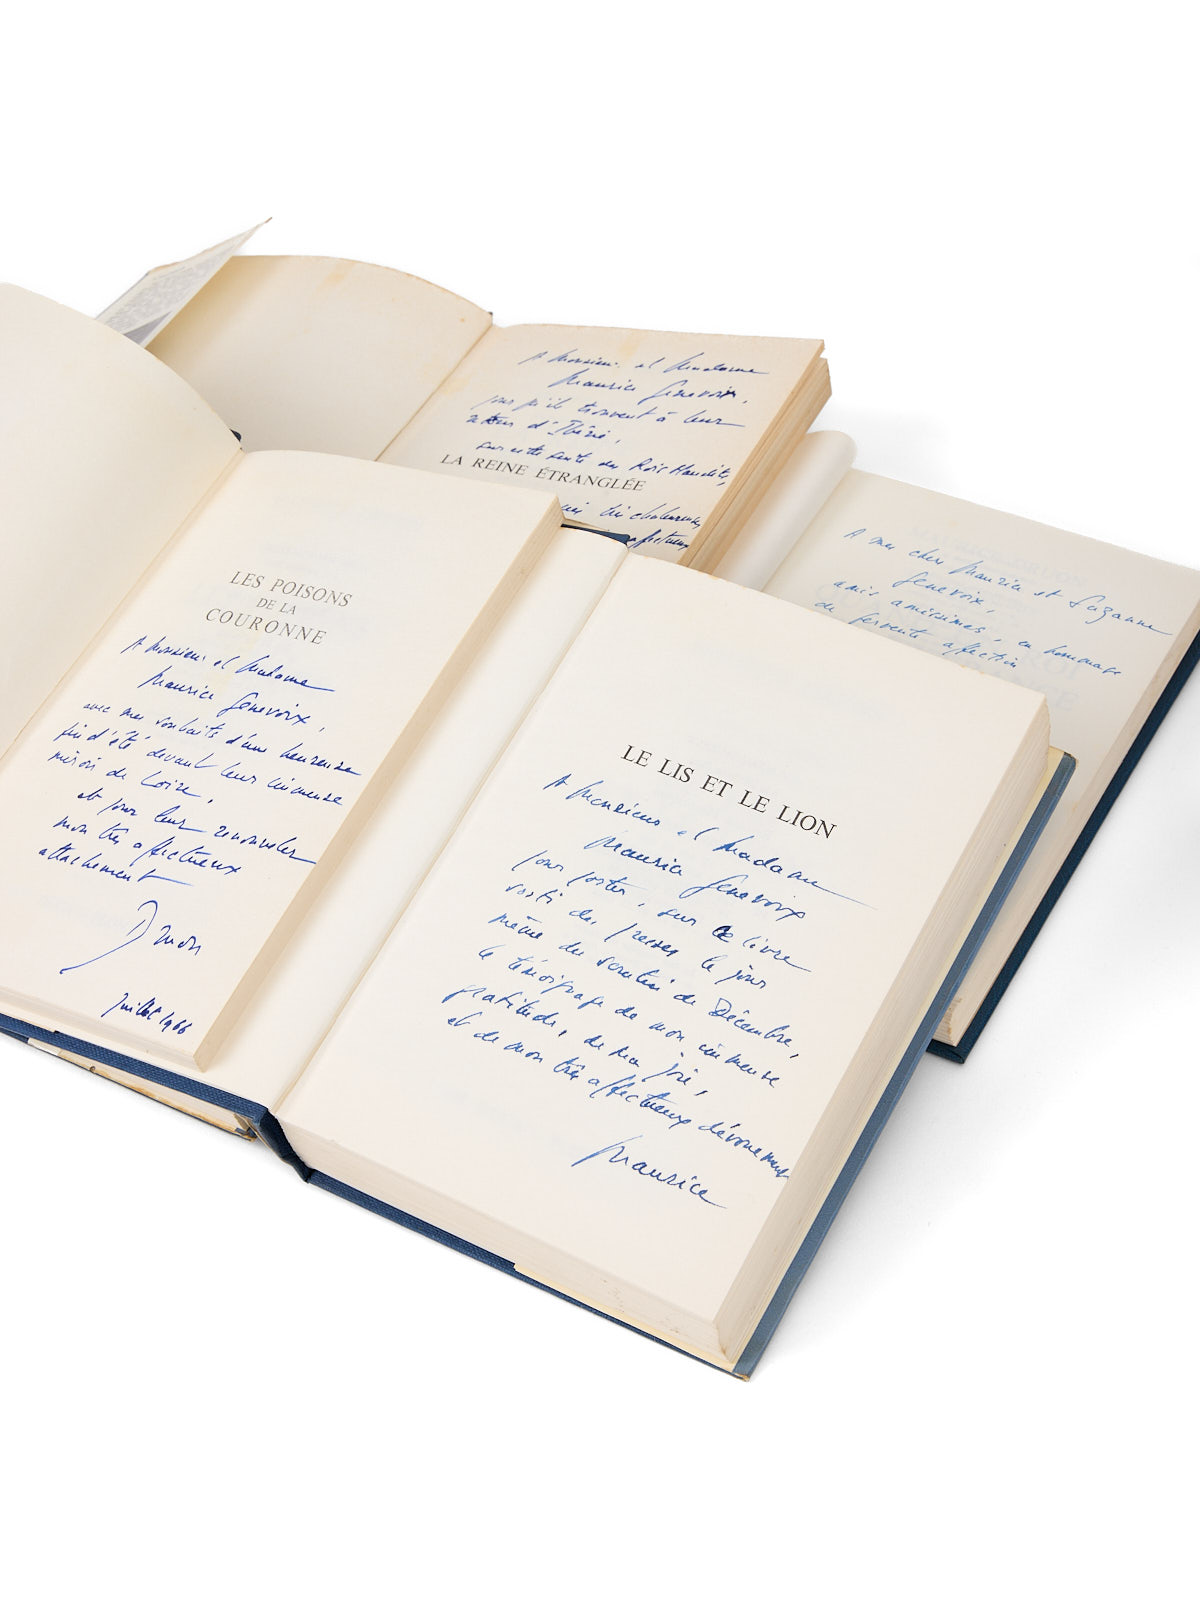 A Monsieur et Madame
Maurice Genevoix,
pour qu'ils trouvent à leur
retour d'Ibérie,
sur cette suite des Rois Maudits,
LA REINE ÉTRANGLÉE
affectueux
A mes chers Maurice et Suzanne
Genevoix,
amis amicissimes, en hommage
de fervente affection
LES POISONS
DE LA
COURONNE
A Monsieur et Madame
Maurice Genevoix,
avec mes souhaits d'une heureuse
fin d'été devant leur immense
miroir de Loire,
et pour leur renouveler
mon très affectueux
attachement
Druon
Juillet 1966
LE LIS ET LE LION
A Monsieur et Madame
Maurice Genevoix
pour porter, sur ce livre
sorti des presses le jour
même du scrutin de Décembre,
le témoignage de mon immense
gratitude, de ma joie,
et de mon très affectueux dévouement
Maurice